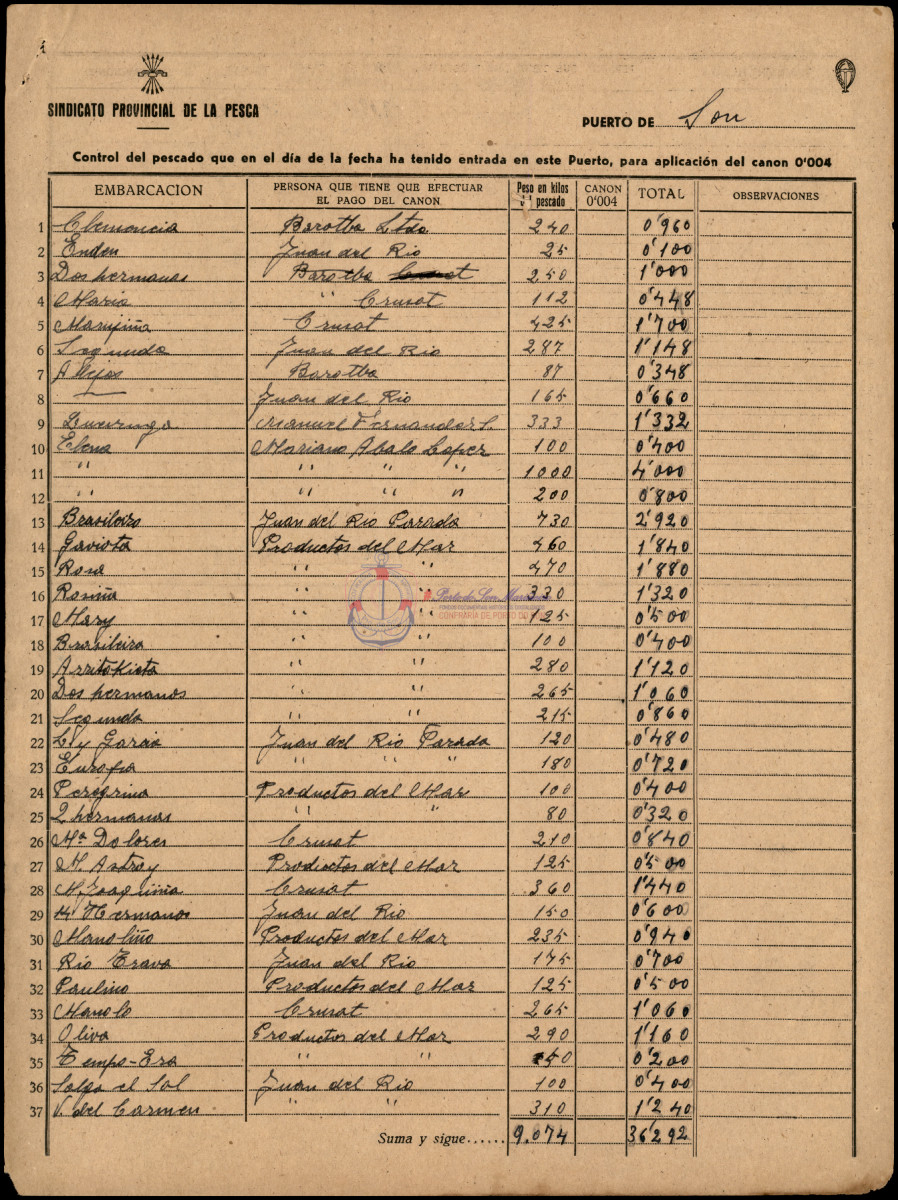 SINDICATO PROVINCIAL DE LA PESCA
PUERTO DE Son
Control del pescado que en el día de la fecha ha tenido entrada en este Puerto, para aplicación del canon 0'004
EMBARCACION PERSONA QUE TIENE QUE EFECTUAR EL PAGO DEL CANON Peso en kilos pescado CANON 0'004 TOTAL OBSERVACIONES
1 Clemencia Barotba Ltda 240 0'960
2 Enden Juan del Rio 25 0'100
3 Dos hermanas Barotba 250 1'000
4 Maria " Crusat 112 0'448
5 Marujiña Crusat 425 1'700
6 Segunda Juan del Rio 287 1'148
7 Barotba 87 0'348
8 Juan del Rio 165 0'660
9 Manuel Fernandez L. 333 1'332
10 Elena Mariano Abalo Lopez 100 0'400
11 " " " " 1000 4'000
12 " " " " 200 0'800
13 Brasileiro Juan del Rio Parada 730 2'920
14 Gaviota Productos del Mar 460 1'840
15 Rosa " " 470 1'880
16 Rosiña " " 330 1'320
17 Mary " " 125 0'500
18 Brasileiro " " 100 0'400
19 Arritokieta " " 280 1'120
20 Dos hermanos " " 265 1'060
21 Segunda " " 215 0'860
22 L y Garcia Juan del Rio Parada 120 0'480
23 " " " 180 0'720
24 Peregrina Productos del Mar 100 0'400
25 2 hermanas " " 80 0'320
26 Mª Dolores Crusat 210 0'840
27 M. Astray Productos del Mar 125 0'500
28 M. Joaquina Crusat 360 1'440
29 4 Hermanos Juan del Rio 150 0'600
30 Manoliño Productos del Mar 235 0'940
31 Rio Juan del Rio 175 0'700
32 Paulino Productos del Mar 125 0'500
33 Manolo Crusat 265 1'060
34 Oliva Productos del Mar 290 1'160
35 Tempo-Era " " 50 0'200
36 Salga el Sol Juan del Rio 100 0'400
37 V. del Carmen " " 310 1'240
Suma y sigue...... 9.074 36'292